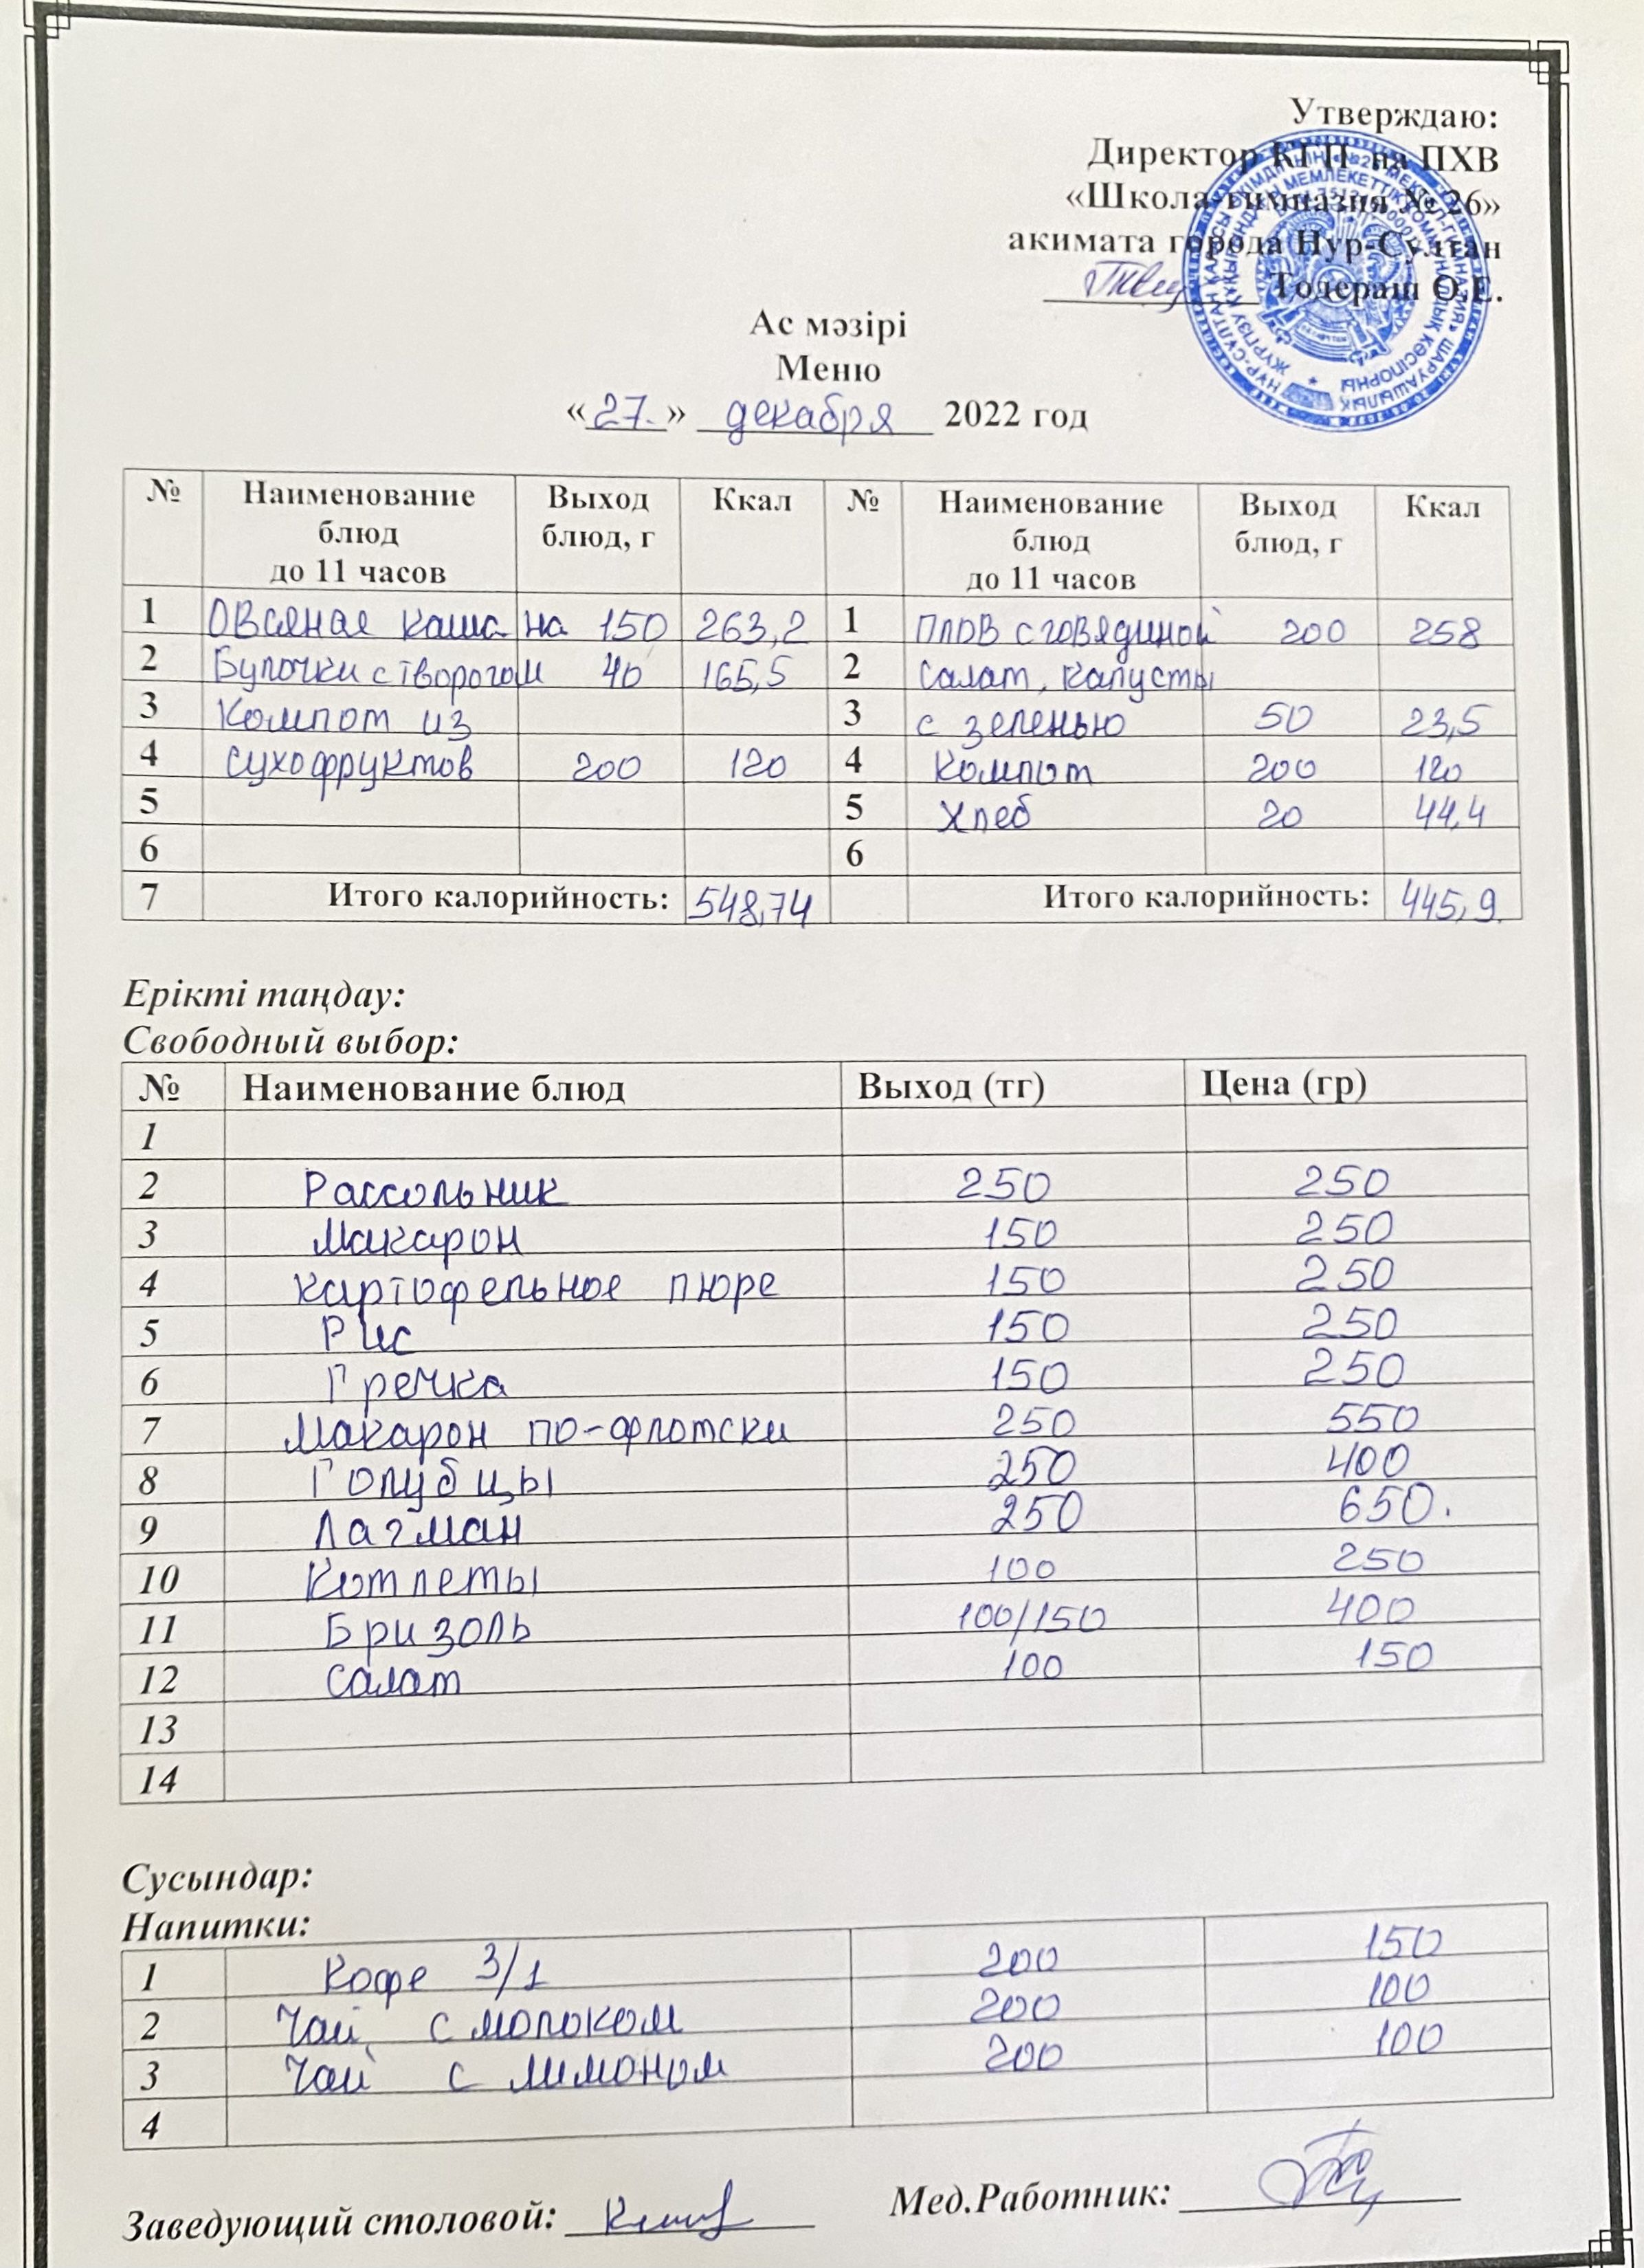 Утверждаю:
Директор КГП на ПХВ
«Школа-гимназия № 26»
акимата города Нур-Султан
Тодераш О.Е.
Ас мәзірі
Меню
«27.» декабря 2022 год
№ Наименование блюд до 11 часов Выход блюд, г Ккал № Наименование блюд до 11 часов Выход блюд, г Ккал
1 Овсяная каша на 150 263,2 1 Плов с говядиной 200 258
2 Булочки с творогом 40 165,5 2 Салат, капусты
3 Компот из 3 с зеленью 50 23,5
4 сухофруктов 200 120 4 Компот 200 120
5 5 Хлеб 20 44,4
6 6
7 Итого калорийность: 548,74 Итого калорийность: 445,9.
Ерікті таңдау:
Свободный выбор:
№ Наименование блюд Выход (тг) Цена (гр)
1
2 Рассольник 250 250
3 Макарон 150 250
4 Картофельное пюре 150 250
5 Рис 150 250
6 Гречка 150 250
7 Макарон по-флотски 250 550
8 Голубцы 250 400
9 Лагман 250 650.
10 Котлеты 100 250
11 Бризоль 100/150 400
12 Салат 100 150
13
14
Сусындар:
Напитки:
1 Кофе 3/1 200 150
2 Чай с молоком 200 100
3 Чай с лимоном 200 100
4
Заведующий столовой: Мед.Работник: